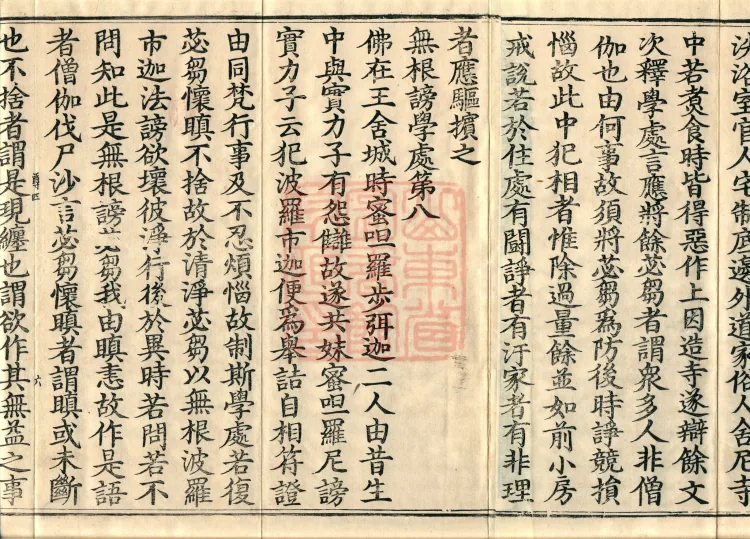 中若煮食時皆得惡作上因造寺遂辯餘文
次釋學處言應將餘苾芻者謂衆多人非僧
伽也由何事故須將苾芻爲防後時諍競損
惱故此中犯相者惟除過量餘並如前小房
戒說若於住處有鬭諍者有汙家者有非理
者應驅擯之
無根謗學處第八
佛在王舍城時蜜呾羅步弭迦二人由昔生
中與實力子有怨讎故遂共妹蜜呾羅尼謗
實力子云犯波羅市迦便爲舉詰自相符證
由同梵行事及不忍煩惱故制斯學處若復
苾芻懷瞋不捨故於清淨苾芻以無根波羅
市迦法謗欲壞彼淨行後於異時若問若不
問知此是無根謗苾芻我由瞋恚故作是語
者僧伽伐尸沙言苾芻懷瞋者謂瞋或未斷
六
也不捨者謂是現纏也謂欲作其無益之事